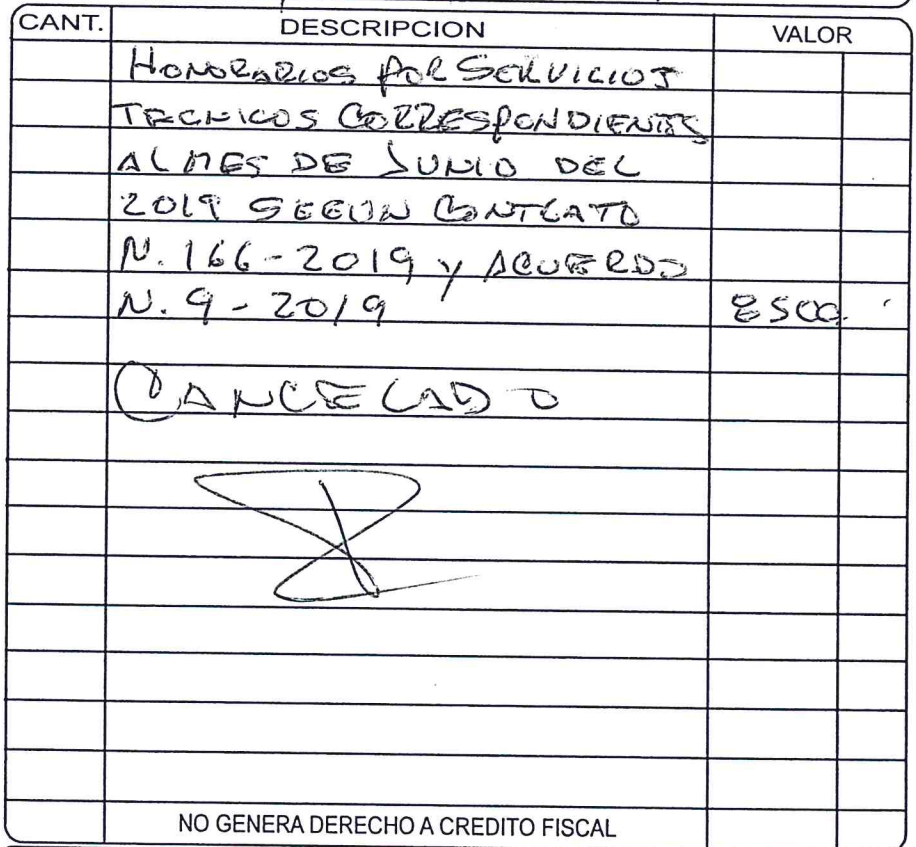 CANT. DESCRIPCION VALOR
HONORARIOS POR SERVICIOS
TECNICOS CORRESPONDIENTES
AL MES DE JUNIO DEL
2019 SEGUN CONTRATO
N. 166-2019 y ACUERDO
N. 9-2019 8500.
CANCELADO
NO GENERA DERECHO A CREDITO FISCAL